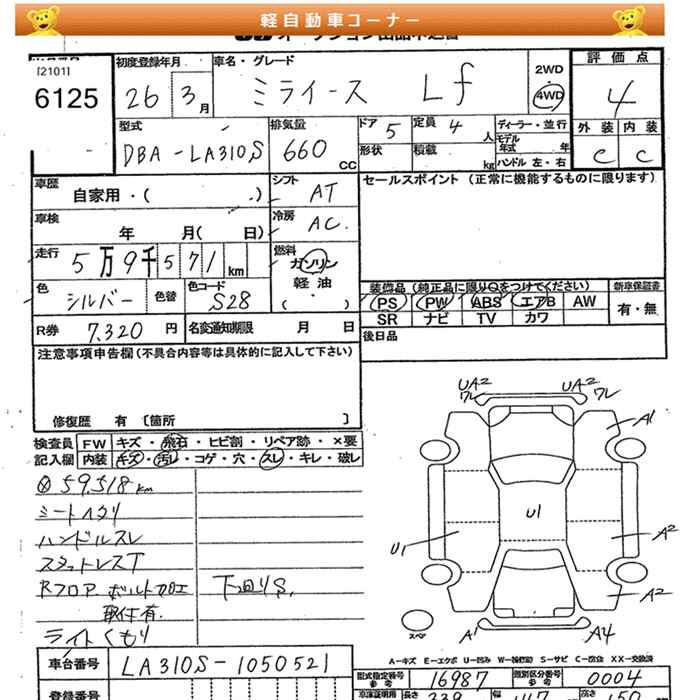 軽自動車コーナー
[2101]
6125
初度登録年月
26 3月
車名・グレード
ミライース Lf
2WD
4WD
評価点
4
外装 内装
C C
型式
DBA-LA310S
排気量
660 CC
ドア 5
定員 4 人
形状
積載 kg
ディーラー・並行
モデル年式 年
ハンドル 左・右
車歴
自家用・( )
シフト AT
セールスポイント (正常に機能するものに限ります)
車検
年 月( 日)
冷房 AC
走行
5万9千571km
燃料
ガソリン
軽油
( ・ )
色 シルバー
色替
色コード S28
装備品 (純正品に限り○をつけてください)
PS PW ABS エアB AW
SR ナビ TV カワ
新車保証書
有・無
R券 7,320 円
名変通知期限 月 日
後日品
注意事項申告欄(不具合内容等は具体的に記入して下さい)
修復歴 有 〔箇所 〕
検査員記入欄
FW キズ・飛石・ヒビ割・リペア跡・×要
内装 キズ・汚レ・コゲ・穴・スレ・キレ・破レ
59,518km
シートヘタリ
ハンドルスレ
スタットレスT
Rフロア ボルト加工
取付有
下回りS
ライトくもり
UA2 ワレ
UA2 ワレ
A1
U1
U1
A2
A2
スペア
A1
A4
A-キズ E-エクボ U-凹み W-補修跡 S-サビ C-腐食 XX-交換済
車台番号 LA310S-1050521
型式指定番号 参考 16987
類別区分番号 参考 0004
登録番号